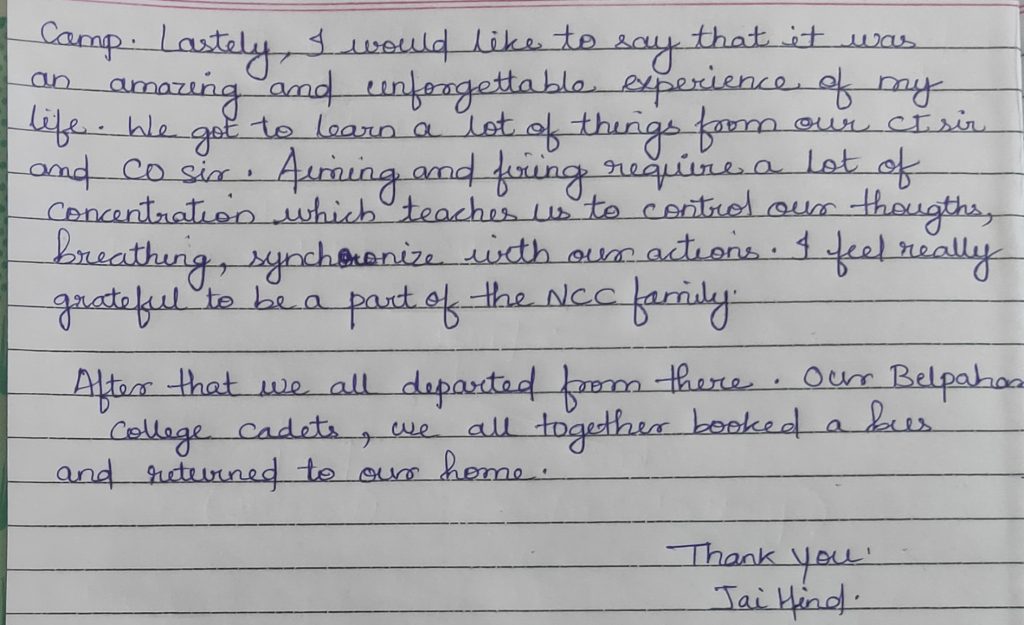 Camp. Lastely, I would like to say that it was
an amazing and unforgettable experience of my
life. We got to learn a lot of things from our CI sir
and CO sir. Aiming and firing require a lot of
concentration which teaches us to control our thougths,
breathing, synchronize with our actions. I feel really
grateful to be a part of the NCC family.
After that we all departed from there. Our Belpahar
College cadets, we all together booked a bus
and returned to our home.
Thank you.
Jai Hind.